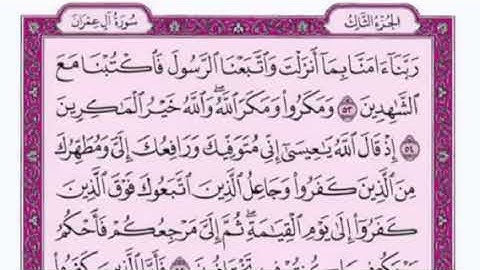 الجزء الثالث
سورة آل عمران
رَبَّنَآ ءَامَنَّا بِمَآ أَنزَلْتَ وَٱتَّبَعْنَا ٱلرَّسُولَ فَٱكْتُبْنَا مَعَ
ٱلشَّٰهِدِينَ ٥٣ وَمَكَرُوا۟ وَمَكَرَ ٱللَّهُ ۖ وَٱللَّهُ خَيْرُ ٱلْمَٰكِرِينَ
٥٤ إِذْ قَالَ ٱللَّهُ يَٰعِيسَىٰٓ إِنِّى مُتَوَفِّيكَ وَرَافِعُكَ إِلَىَّ وَمُطَهِّرُكَ
مِنَ ٱلَّذِينَ كَفَرُوا۟ وَجَاعِلُ ٱلَّذِينَ ٱتَّبَعُوكَ فَوْقَ ٱلَّذِينَ
كَفَرُوٓا۟ إِلَىٰ يَوْمِ ٱلْقِيَٰمَةِ ۖ ثُمَّ إِلَىَّ مَرْجِعُكُمْ فَأَحْكُمُ
بَيْنَكُمْ فِيمَا كُنتُمْ فِيهِ تَخْتَلِفُونَ ٥٥ فَأَمَّا ٱلَّذِينَ كَفَرُوا۟